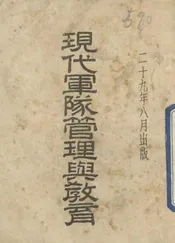 590
二十九年八月出版
現代軍隊管理與教育